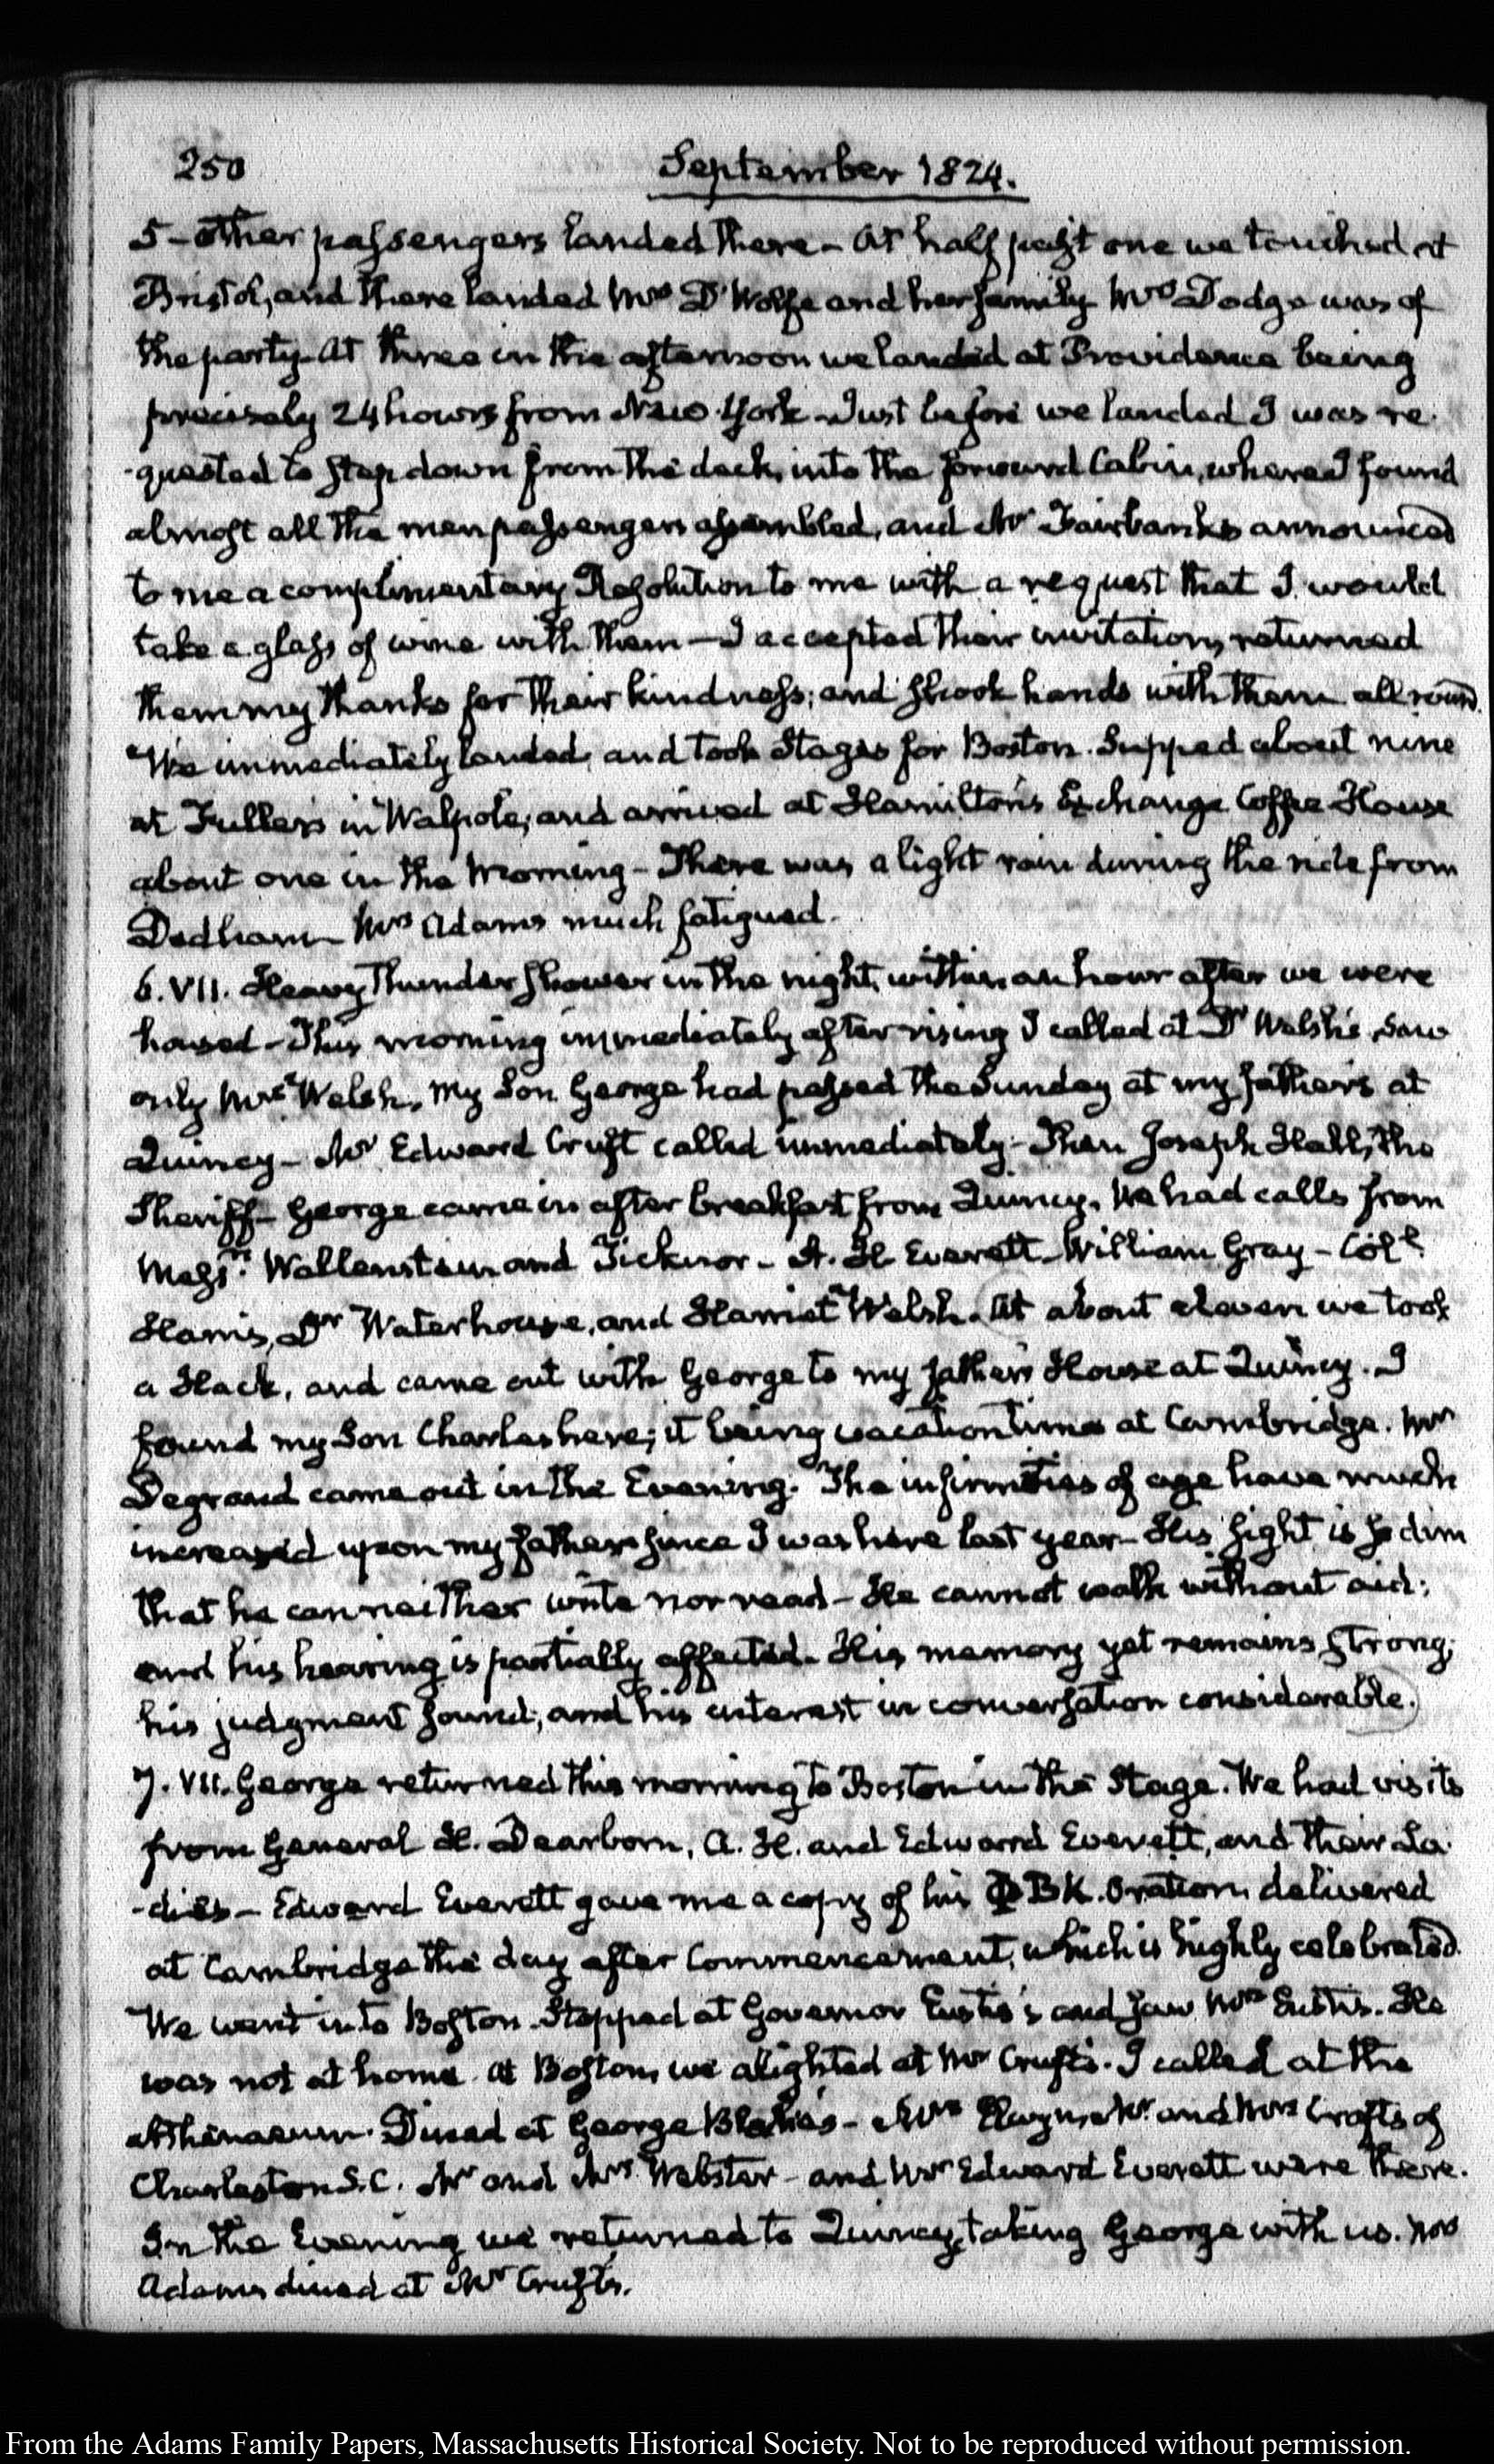 250
September 1824.
5 - other passengers landed there - At half past one we touched at
Bristol, and there landed Mrs D'Wolfe and her family Mrs Dodge was of
the party. At three in the afternoon we landed at Providence being
precisely 24 hours from New-York - Just before we landed I was re-
-quested to step down from the deck, into the forward Cabin, where I found
almost all the men passengers assembled, and Mr Fairbanks announced
to me a complimentary Resolution to me with a request that I would
take a glass of wine with them - I accepted their invitation, returned
them my thanks for their kindness; and shook hands with them all round.
We immediately landed, and took Stages for Boston. Supped about nine
at Fuller's in Walpole, and arrived at Hamilton's Exchange Coffee House
about one in the Morning - There was a light rain during the ride from
Dedham - Mrs Adams much fatigued.
6. VII. Heavy Thunder Shower in the night, within an hour after we were
housed - This morning immediately after rising I called at Dr Welsh's saw
only Mrs Welsh. My Son George had passed the Sunday at my father's at
Quincy - Mr Edward Cruft called immediately - Then Joseph Hall, the
Sheriff - George came in after breakfast from Quincy. We had calls from
Messrs. Wallenstein and Ticknor - A. H. Everett - William Gray - Coll
Harris, Dr Waterhouse, and Harriet Welsh. At about eleven we took
a Hack, and came out with George to my father's House at Quincy. I
found my Son Charles here; it being vacation time at Cambridge. Mr
Degrand came out in the Evening. The infirmities of age have much
increased upon my father since I was here last year - His sight is so dim
that he can neither write nor read - He cannot walk without aid;
and his hearing is partially affected. His memory yet remains strong,
his judgment sound; and his interest in conversation considerable.
7. VII. George returned this morning to Boston in the Stage. We had visits
from General H. Dearborn, A. H. and Edward Everett, and their La-
-dies - Edward Everett gave me a copy of his ΦBK. Oration, delivered
at Cambridge the day after Commencement, which is highly celebrated.
We went into Boston. Stopped at Governor Eustis's and saw Mrs Eustis. He
was not at home. At Boston, we alighted at Mr Cruft's. I called at the
Athenaeum. Dined at George Blake's - Mrs Elwyn, Mr. and Mrs Crafts of
Charleston S.C. Mr and Mrs Webster - and Mr Edward Everett were there.
In the Evening we returned to Quincy, taking George with us. Mrs
Adams dined at Mr Cruft's.
From the Adams Family Papers, Massachusetts Historical Society. Not to be reproduced without permission.